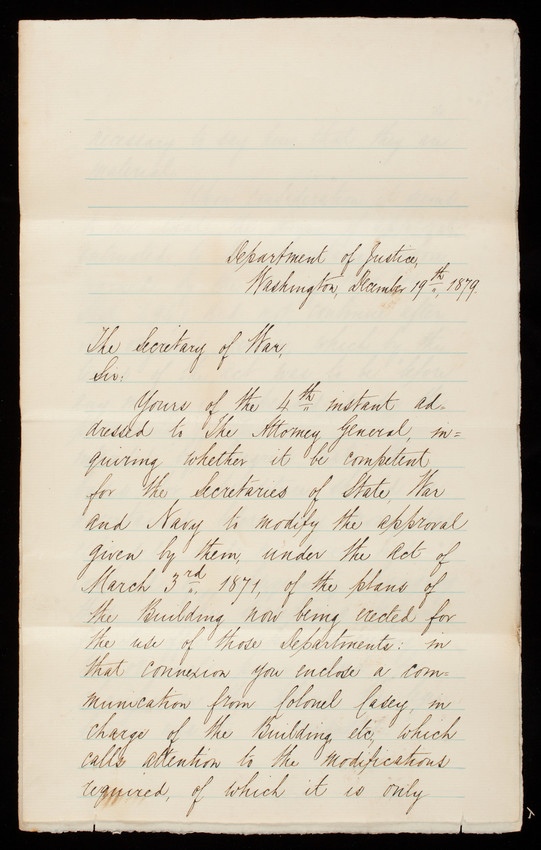 Department of Justice,
Washington, December 19th, 1879.
The Secretary of War,
Sir:
Yours of the 4th instant ad-
dressed to The Attorney General, in=
quiring whether it be competent
for the Secretaries of State, War
and Navy to modify the approval
given by them, under the Act of
March 3rd, 1871, of the plans of
the Building now being erected for
the use of those Departments: in
that connexion you enclose a com=
munication from Colonel Casey, in
charge of the Building etc, which
calls attention to the modifications
required, of which it is only